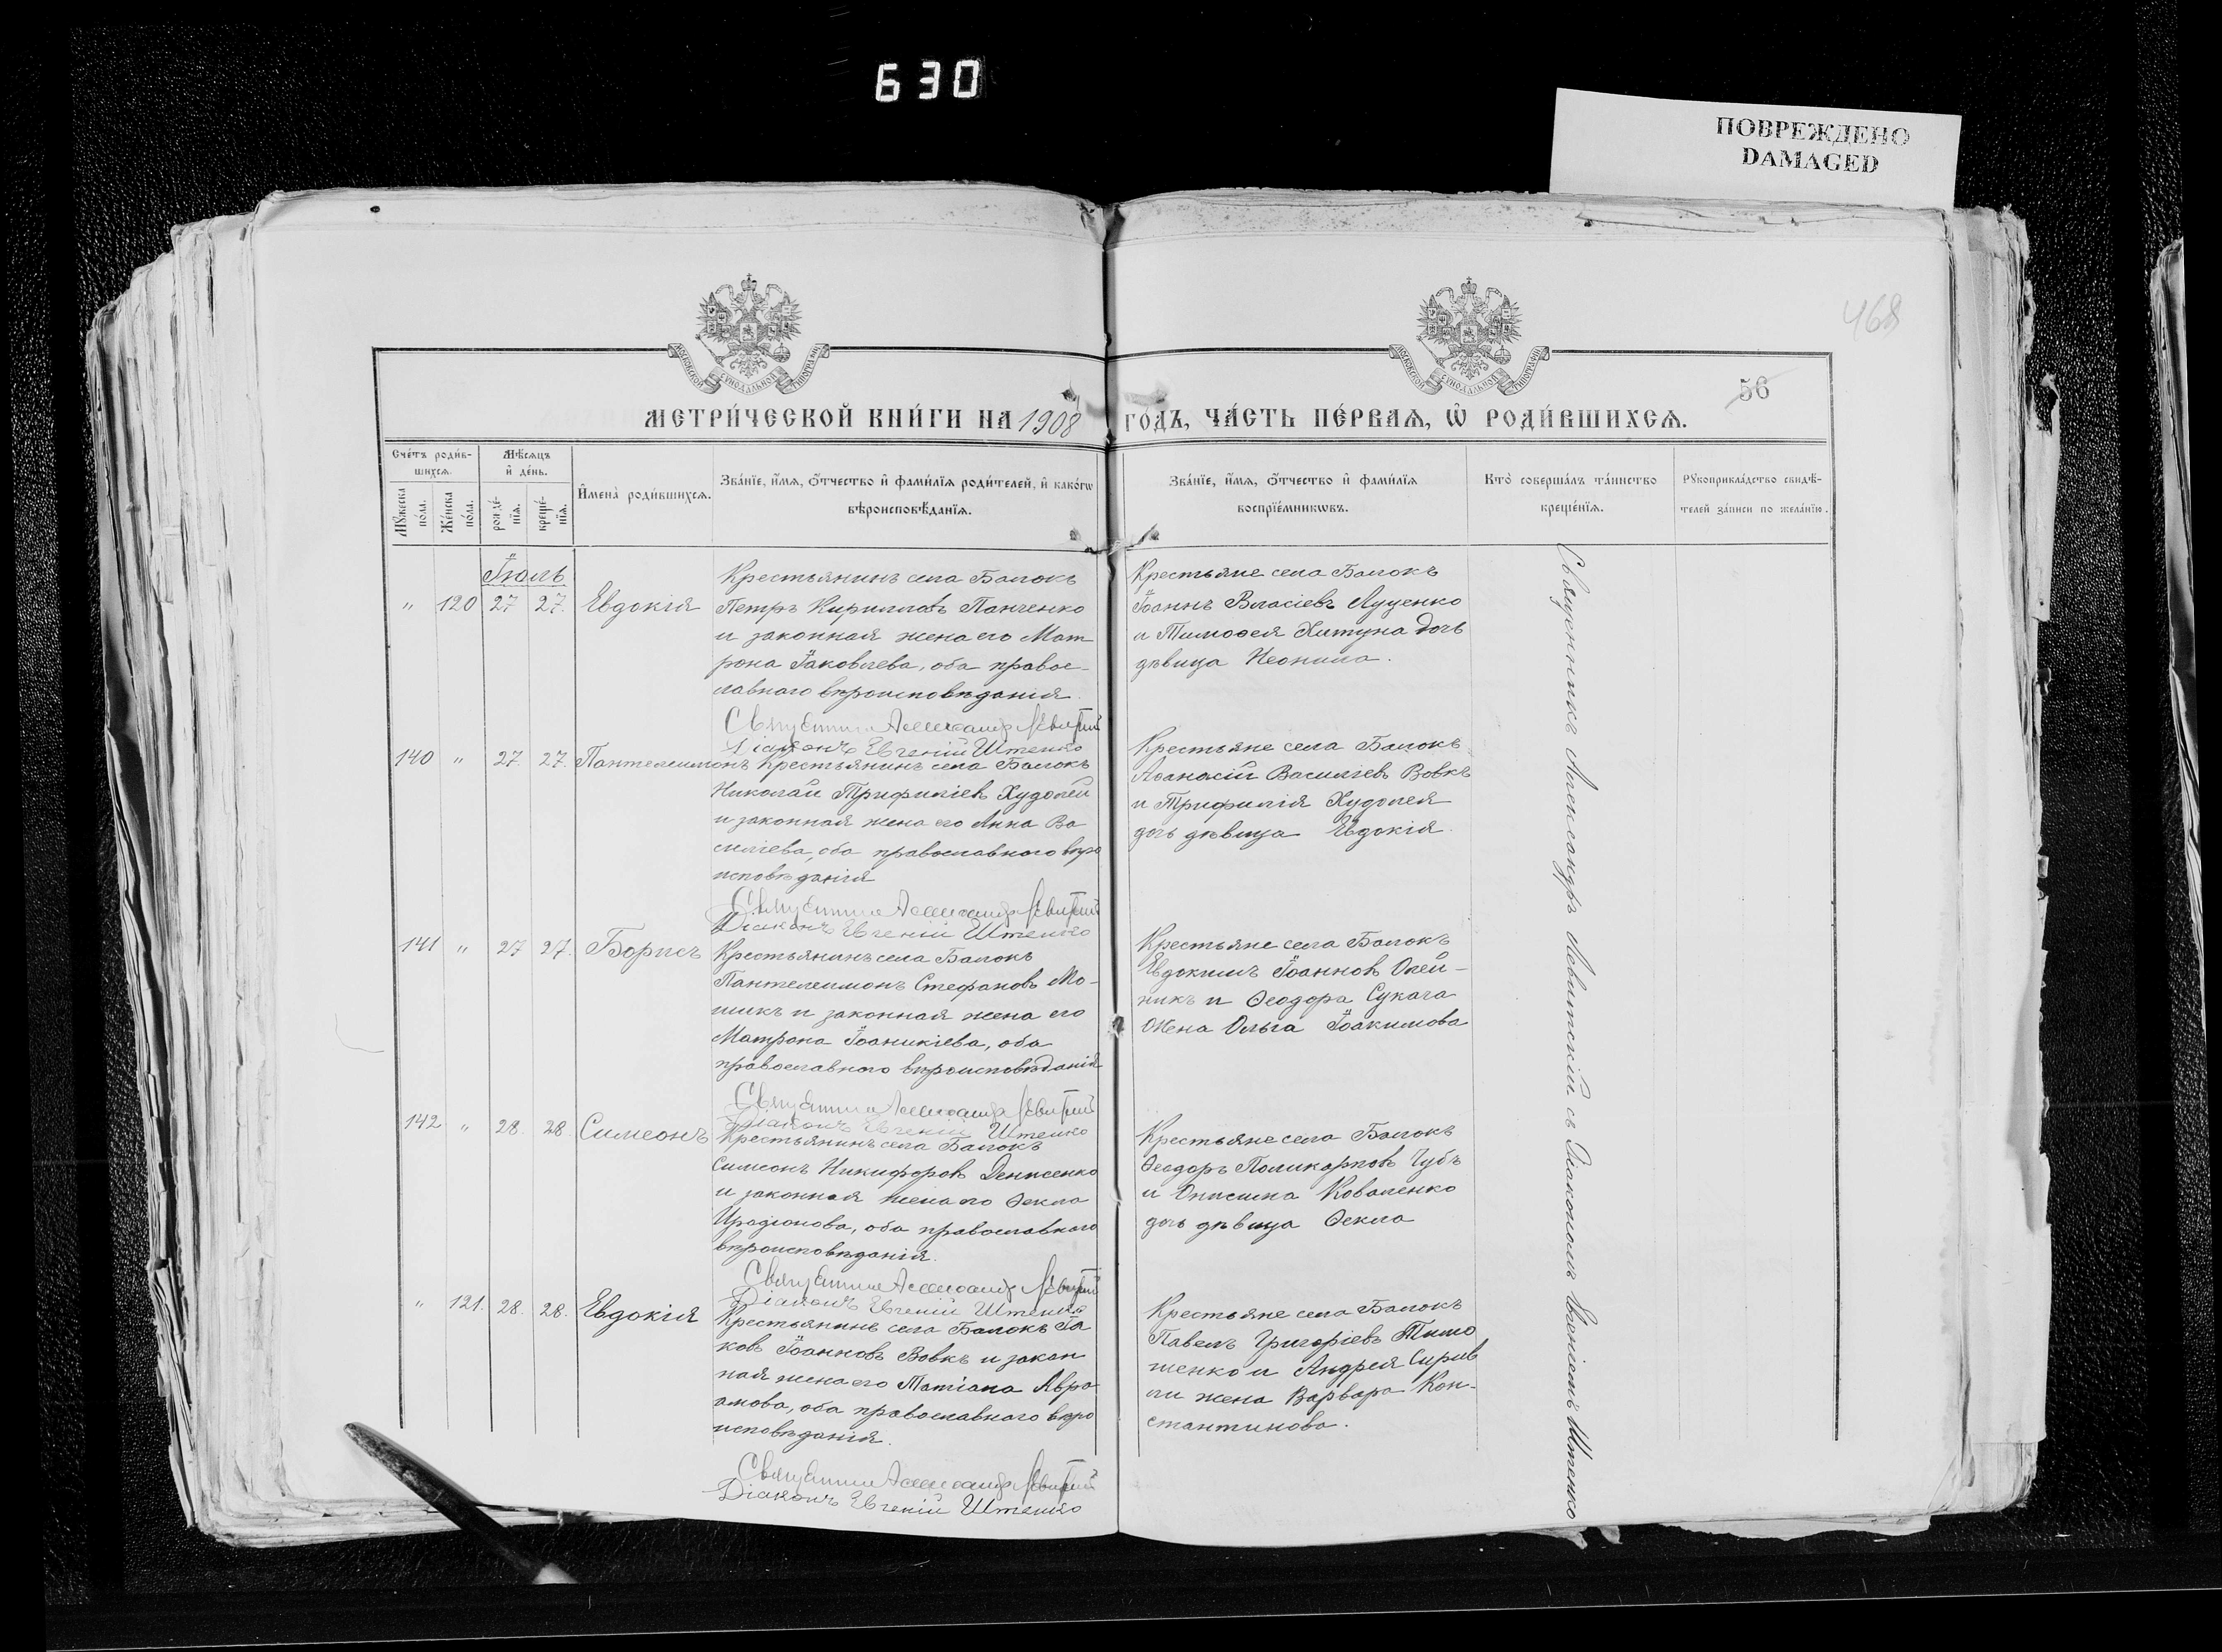 630
ПОВРЕЖДЕНО
DAMAGED
468
56
МОСКОВСКОЙ СѴНОДАЛЬНОЙ ТИПОГРАФІИ
МОСКОВСКОЙ СѴНОДАЛЬНОЙ ТИПОГРАФІИ
МЕТРИ́ЧЕСКОЙ КНИ́ГИ НА 1908 ГО́ДЪ, ЧА́СТЬ ПЕ́РВАѦ, Ѽ РОДИ́ВШИХСѦ.
Сче́тъ роди́в-
шихсѧ.
Мꙋ́жеска
по́ла.
Же́нска
по́ла.
Мѣ́сѧцъ
и҆ де́нь.
рожде́-
нїѧ.
креще́-
нїѧ.
И҆мена̀ роди́вшихсѧ.
Зва́нїе, и҆́мѧ, ѻ҆́тчество и҆ фами́лїѧ роди́телей, и҆ како́гѡ
вѣроисповѣ́данїѧ.
Зва́нїе, и҆́мѧ, ѻ҆́тчество и҆ фами́лїѧ
воспрїе́мникѡвъ.
Кто̀ соверша́лъ та́инство
креще́нїѧ.
Рꙋкоприкла́дство свидѣ́-
телей за́писи по жела́нїю.
Іюль
" 120 27 27. Евдокія
Крестьянинъ села Балокъ
Петръ Кирилловъ Панченко
и законная жена его Мат
рона Іаковлева, оба право-
славнаго вѣроисповѣданія.
Священникъ Александръ Левитскій
Діаконъ Евгеній Штепко
Крестьяне села Балокъ
Іоаннъ Власіевъ Луценко
и Тимоѳея Хитуна дочь
дѣвица Неонила.
140 " 27. 27. Пантелеимонъ
Крестьянинъ села Балокъ
Николай Трифиліевъ Худолей
и законная жена его Анна Ва
силіева, оба православнаго вѣро
исповѣданія
Священникъ Александръ Левитскій
Діаконъ Евгеній Штепко
Крестьяне села Балокъ
Аѳанасій Василіевъ Вовкъ
и Трифилія Худолея
дочь дѣвица Евдокія.
141 " 27 27. Борисъ
Крестьянинъ села Балокъ
Пантелеимонъ Стефановъ Мо-
шикъ и законная жена его
Матрона Іоаникіева, оба
православнаго вѣроисповѣданія
Священникъ Александръ Левитскій
Діаконъ Евгеній Штепко
Крестьяне села Балокъ
Евдокимъ Іоанновъ Олей-
никъ и Ѳеодора Сукача
жена Ольга Іоакимова
142 " 28. 28. Симеонъ
Крестьянинъ села Балокъ
Симеонъ Никифоровъ Денисенко
и законная жена его Ѳекла
Иродіонова, оба православнаго
вѣроисповѣданія.
Священникъ Александръ Левитскій
Діаконъ Евгеній Штепко
Крестьяне села Балокъ
Ѳеодоръ Поликарповъ Чубъ
и Онисима Коваленко
дочь дѣвица Ѳекла
" 121. 28. 28. Евдокія
Крестьянинъ села Балокъ Іа
ковъ Іоанновъ Вовкъ и закон
ная жена его Татіана Авра
амова, оба православнаго вѣро
исповѣданія.
Священникъ Александръ Левитскій
Діаконъ Евгеній Штепко
Крестьяне села Балокъ
Павелъ Григоріевъ Тимо
шенко и Андрея
жена Варвара Кон-
стантинова.
Священникъ Александръ Левитскій съ Діакономъ Евгеніемъ Штепко